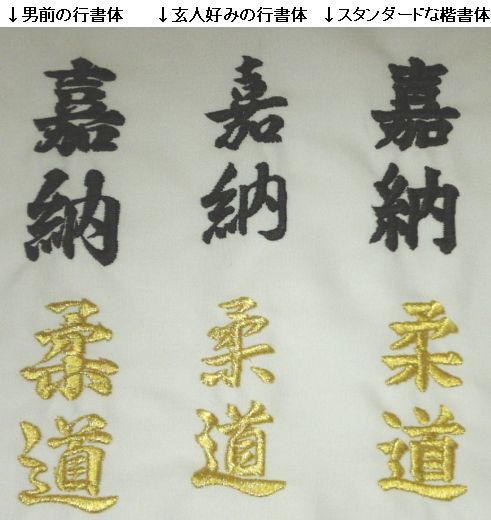 ↓男前の行書体 ↓玄人好みの行書体 ↓スタンダードな楷書体
嘉納 嘉納 嘉納
柔道 柔道 柔道